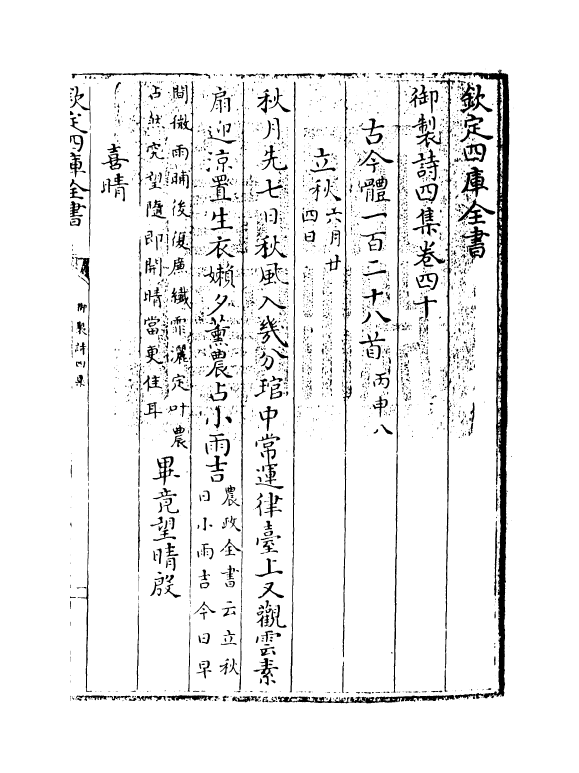 欽定四庫全書
御製詩四集卷四十
古今體一百二十八首丙申八
立秋六月廿
四日
秋月先七日秋風入幾分琯中常運律臺上又觀雲素
扇迎涼置生衣嬾夕薰農占小雨吉農政全書云立秋
日小雨吉今日早
間微雨晡後復廉纖霏灑定叶農
占然究望隨即開晴當更佳耳
畢竟望晴殷
喜晴
欽定四庫全書
御製詩四集
一